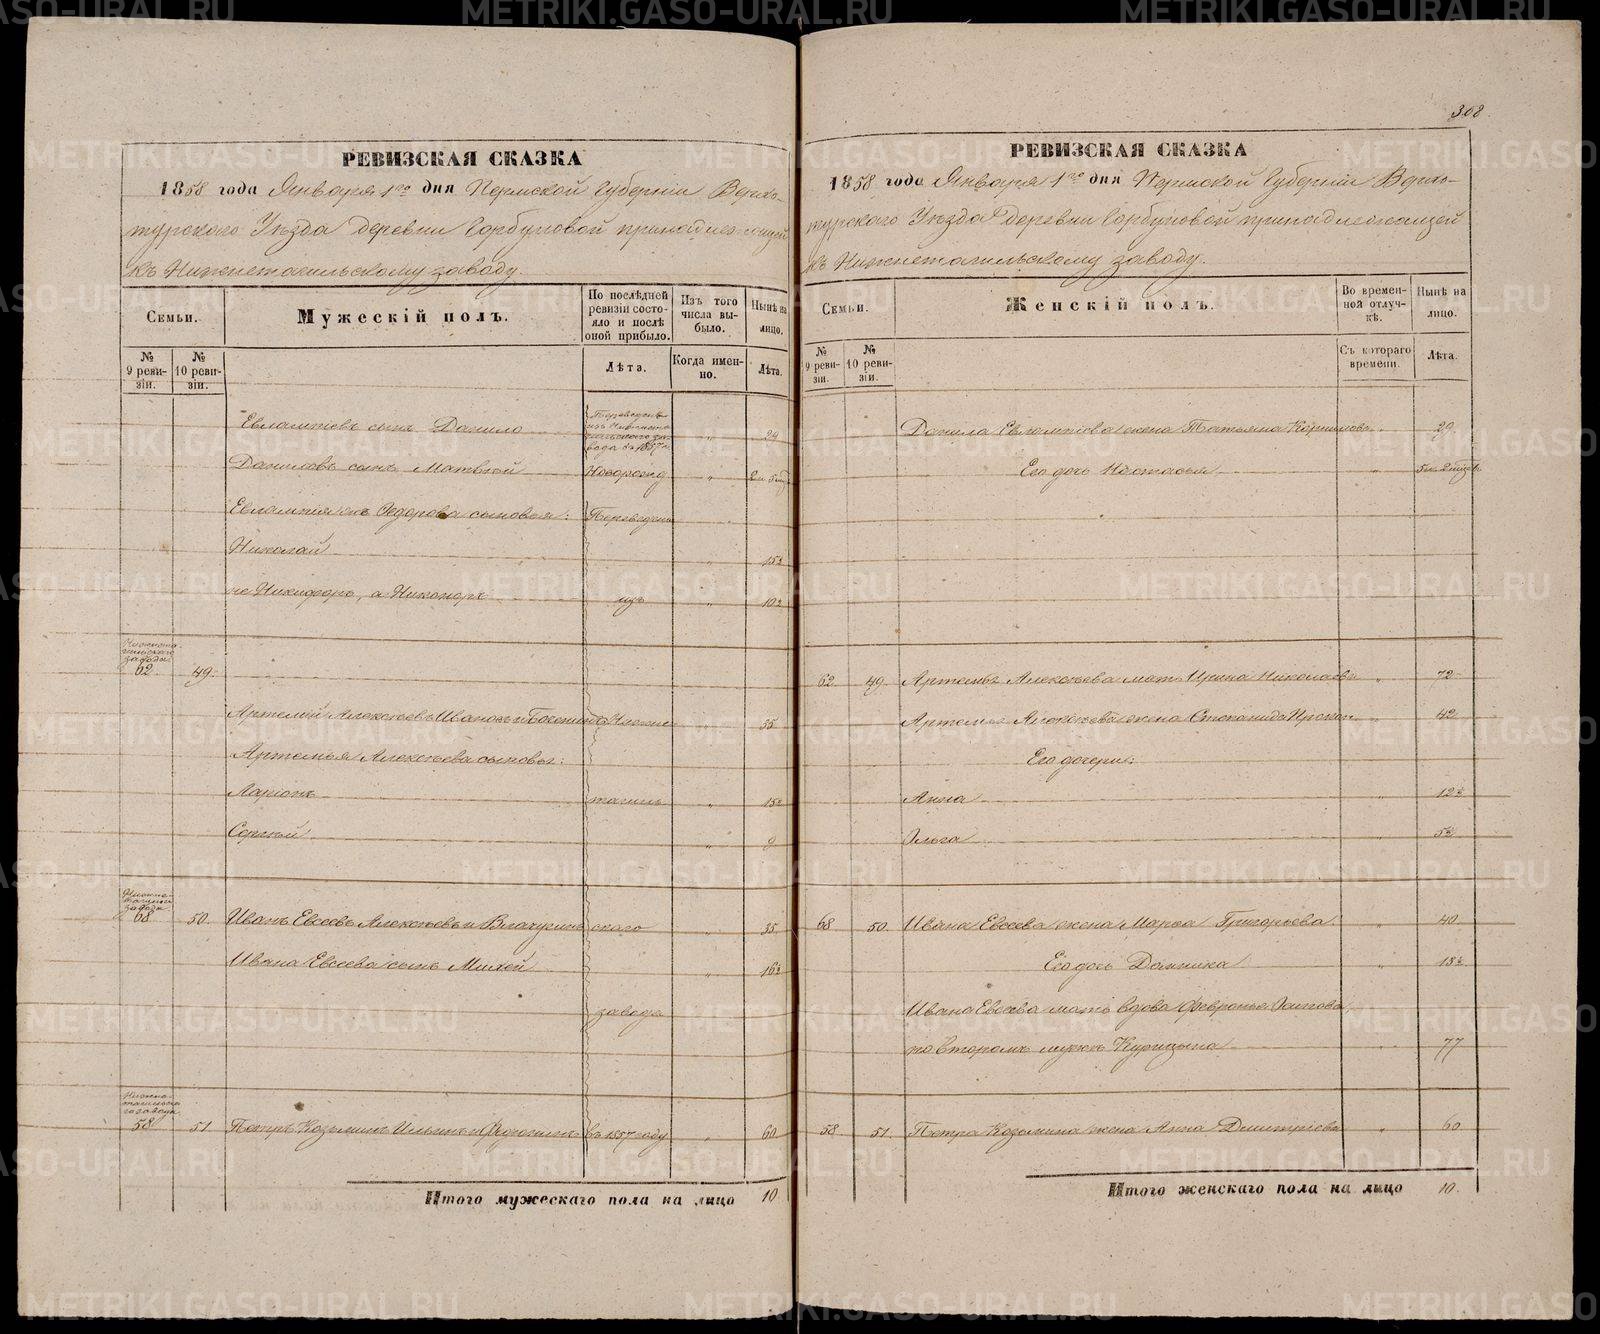 308.
РЕВИЗСКАЯ СКАЗКА
1858 года Января 1го дня Пермской Губерніи Верхо-
турскаго Уѣзда деревни Горбуновой принадлежащей
къ Нижнетагильскому заводу.
Семьи.
Мужескій полъ.
По послѣдней ревизіи состояло и послѣ оной прибыло.
Изъ того числа выбыло.
Нынѣ на лицо.
№ 9 ревизіи.
№ 10 ревизіи.
Лѣта.
Когда именно.
Лѣта.
Евлампіевъ сынъ Данило
Переведенъ изъ Нижнетагильскаго завода въ 1857 г.
29
Даниловъ сынъ Матвѣй Новорожд
Евлампія Федорова сыновья: Переведены
Николай 15½
не Никифоръ, а Никоноръ изъ 10½
Нижнетагильскаго завода
62 49.
Артемій Алексѣевъ Ивановъ Нижне 35
Артемья Алексѣева сыновья:
Ларіонъ тагиль 15½
Сергѣй 9
Нижнетагильск завода
68 50. Иванъ Евсеевъ Алексѣевъ скаго 35
Ивана Евсеева сынъ Михей 16½
завода
Нижнетагильскаго завода
58 51 Петръ Козьминъ Ильинъ въ 1857 году 60
Итого мужескаго пола на лицо 10
РЕВИЗСКАЯ СКАЗКА
1858 года Января 1го дня Пермской Губерніи Верхо-
турскаго Уѣзда деревни Горбуновой принадлежащей
къ Нижнетагильскому заводу.
Семьи.
Женскій полъ.
Во временной отлучкѣ.
Нынѣ на лицо.
№ 9 ревизіи.
№ 10 ревизіи.
Съ котораго времени.
Лѣта.
Данила Евлампіева жена Татьяна Корнилова 29
Его дочь Настасья
62 49. Артемья Алексѣева мать Ирина Николаева 72
Артемья Алексѣева жена Степанида Прокоп 42
Его дочери:
Анна 12½
Ольга 5½
68 50. Ивана Евсеева жена Марѳа Григорьева. 40
Его дочь Домника 18½
Ивана Евсеева мать вдова Февронья Осипова,
по второмъ мужѣ Курицына 77
58 51. Петра Козьмина жена Анна Дмитріева 60
Итого женскаго пола на лицо 10.
METRIKI.GASO-URAL.RU